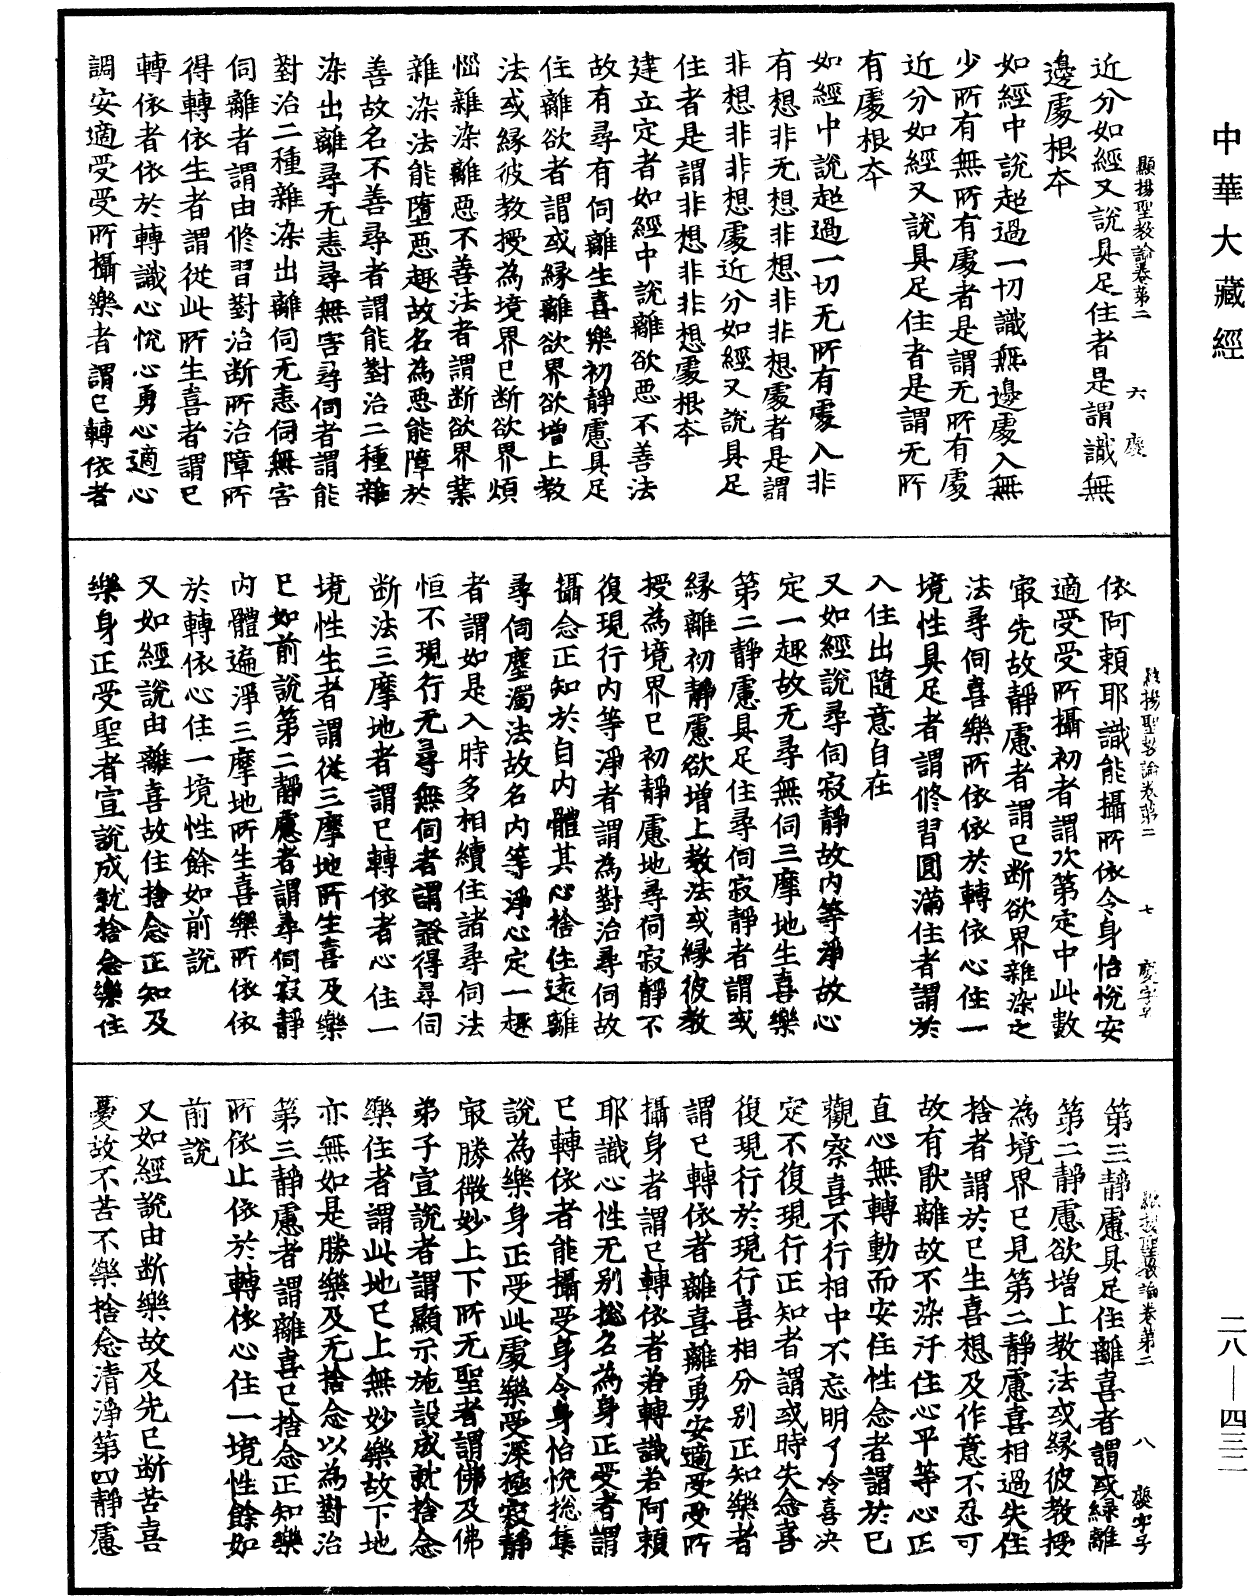 中華大藏經
顯揚聖教論卷第二　六　癡
近分如經又說具足住者是謂識無
邊處根本
如經中說超過一切識無邊處入無
少所有無所有處者是謂无所有處
近分如經又說具足住者是謂无所
有處根本
如經中說超過一切无所有處入非
有想非无想非想非非想處者是謂
非想非非想處近分如經又說具足
住者是謂非想非非想處根本
建立定者如經中說離欲惡不善法
故有尋有伺離生喜樂初靜慮具足
住離欲者謂或緣離欲界欲增上教
法或緣彼教授為境界已斷欲界煩
惱雜染離惡不善法者謂斷欲界業
雜染法能墮惡趣故名為惡能障於
善故名不善尋者謂能對治二種雜
染出離尋无恚尋無害尋伺者謂能
對治二種雜染出離伺无恚伺無害
伺離者謂由修習對治斷所治障所
得轉依生者謂從此所生喜者謂已
轉依者依於轉識心悅心勇心適心
調安適受受所攝樂者謂已轉依者
顯揚聖教論卷第二　七　癡字号
依阿賴耶識能攝所依令身怡悅安
適受受所攝初者謂次第定中此數
㝡先故靜慮者謂已斷欲界雜染之
法尋伺喜樂所依依於轉依心住一
境性具足者謂修習圓滿住者謂於
入住出隨意自在
又如經說尋伺寂靜故內等淨故心
定一趣故无尋無伺三摩地生喜樂
第二靜慮具足住尋伺寂靜者謂或
緣離初靜慮欲增上教法或緣彼教
授為境界已初靜慮地尋伺寂靜不
復現行內等淨者謂為對治尋伺故
攝念正知於自內體其心捨住遠離
尋伺塵濁法故名內等淨心定一趣
者謂如是入時多相續住諸尋伺法
恒不現行无尋無伺者謂證得尋伺
斷法三摩地者謂已轉依者心住一
境性生者謂從三摩地所生喜及樂
已如前說第二靜慮者謂尋伺寂靜
內體遍淨三摩地所生喜樂所依依
於轉依心住一境性餘如前說
又如經說由離喜故住捨念正知及
樂身正受聖者宣說成就捨念樂住
顯揚聖教論卷第二　八　癡字号
第三靜慮具足住離喜者謂或緣離
第二靜慮欲增上教法或緣彼教授
為境界已見第二靜慮喜相過失住
捨者謂於已生喜想及作意不忍可
故有猒離故不染汙住心平等心正
直心無轉動而安住性念者謂於已
觀察喜不行相中不忘明了冷喜決
定不復現行正知者謂或時失念喜
復現行於現行喜相分別正知樂者
謂已轉依者離喜離勇安適受受所
攝身者謂已轉依者若轉識若阿賴
耶識心性无別捴名為身正受者謂
已轉依者能攝受身令身怡悅捴集
說為樂身正受此處樂受深極寂靜
㝡勝微妙上下所无聖者謂佛及佛
弟子宣說者謂顯示施設成就捨念
樂住者謂此地已上無妙樂故下地
亦無如是勝樂及无捨念以為對治
第三靜慮者謂離喜已捨念正知樂
所依止依於轉依心住一境性餘如
前說
又如經說由斷樂故及先已斷苦喜
憂故不苦不樂捨念清淨第四靜慮
二八—四三二